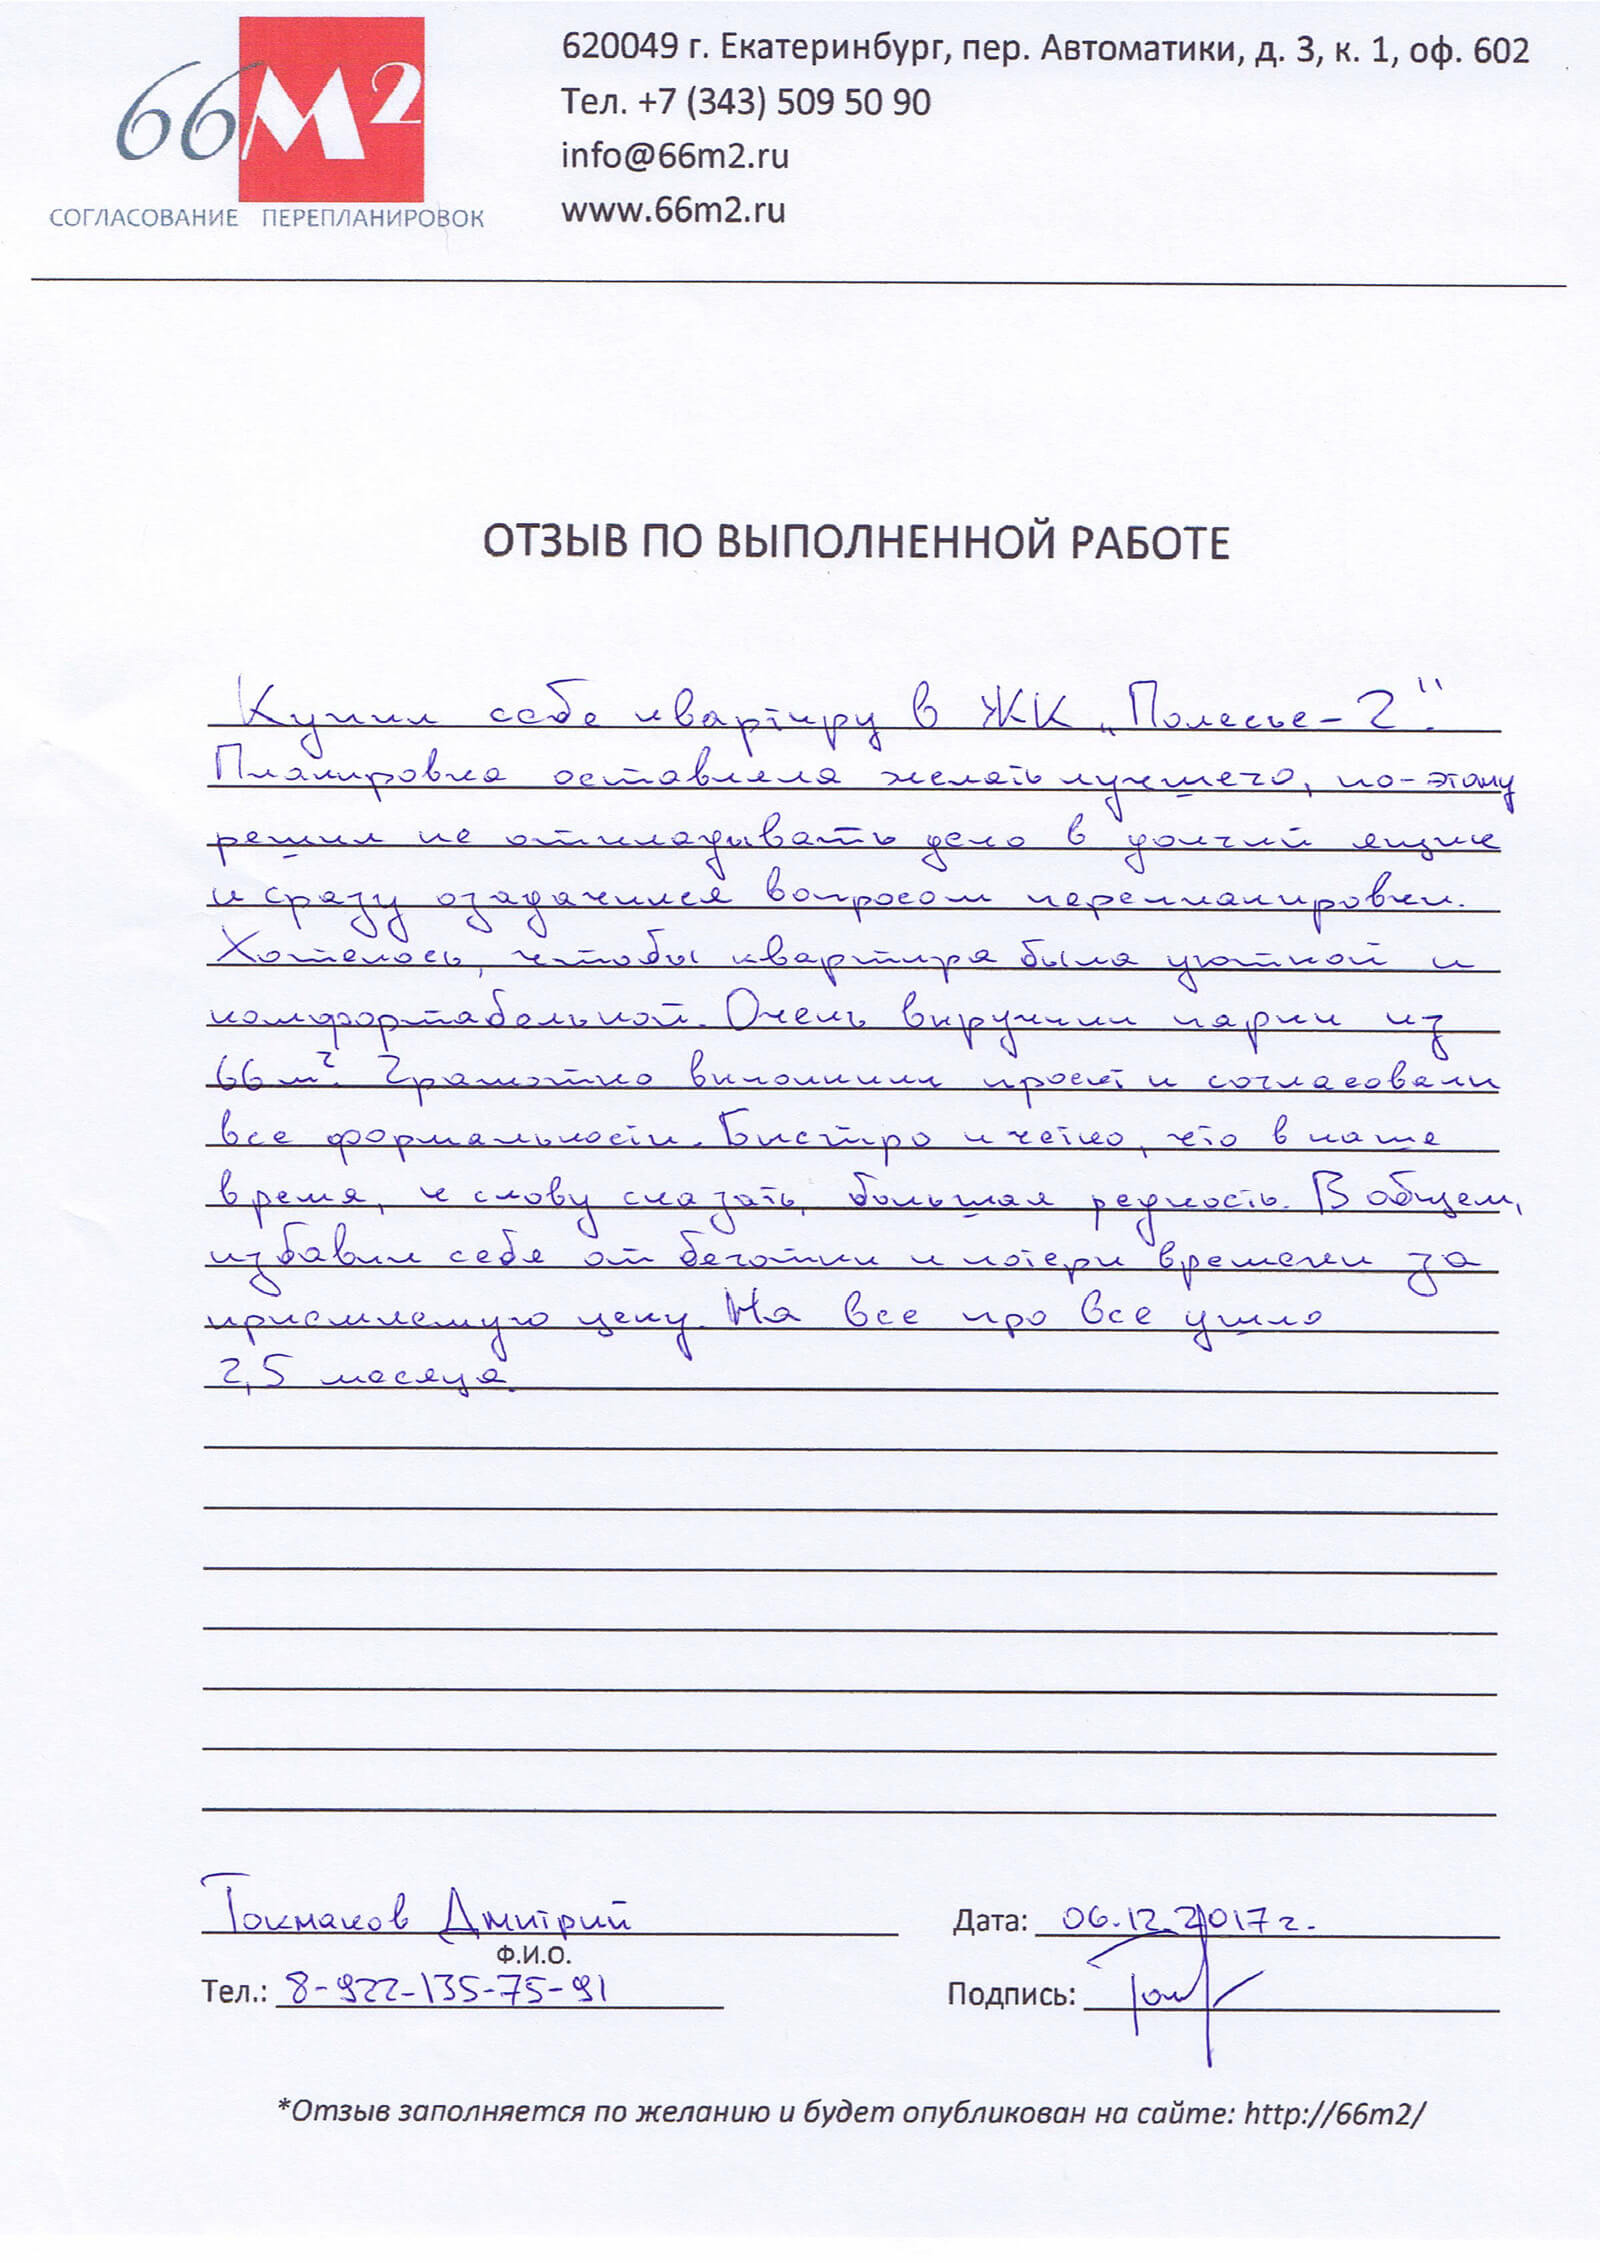 66м2
СОГЛАСОВАНИЕ ПЕРЕПЛАНИРОВОК
620049 г. Екатеринбург, пер. Автоматики, д. 3, к. 1, оф. 602
Тел. +7 (343) 509 50 90
info@66m2.ru
www.66m2.ru
ОТЗЫВ ПО ВЫПОЛНЕННОЙ РАБОТЕ
Купил себе квартиру в ЖК „Полесье-2".
Планировка оставляла желать лучшего, по-этому
решил не откладывать дело в долгий ящик
и сразу озадачился вопросом перепланировки.
Хотелось, чтобы квартира была уютной и
комфортабельной. Очень выручили парни из
66 м². Грамотно выполнили проект и согласовали
все формальности. Быстро и четко, что в наше
время, к слову сказать, большая редкость. В общем,
избавил себя от беготни и потери времени за
приемлемую цену. На все про все ушло
2,5 месяца.
Токмаков Дмитрий
Ф.И.О.
Дата: 06.12.2017 г.
Тел.: 8-922-135-75-91
Подпись:
*Отзыв заполняется по желанию и будет опубликован на сайте: http://66m2/